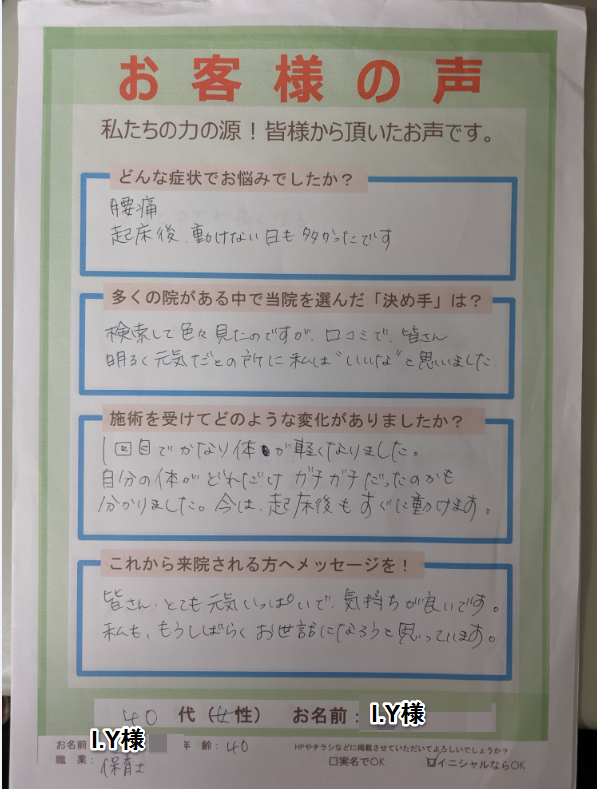 お客様の声
私たちの力の源！皆様から頂いたお声です。
どんな症状でお悩みでしたか？
腰痛
起床後、動けない日も多かったです
多くの院がある中で当院を選んだ「決め手」は？
検索して色々見たのですが、口コミで、皆さん
明るく元気だとの所に私は"いいな"と思いました.
施術を受けてどのような変化がありましたか？
1回目でかなり体が軽くなりました。
自分の体がどれだけガチガチだったのかも
分かりました。今は、起床後もすぐに動けます。
これから来院される方へメッセージを！
皆さん、とても元気いっぱいで、気持ちが良いです。
私も、もうしばらくお世話になろうと思っています。
40 代（女性） お名前：I.Y様
お名前 I.Y様 年齢：40 HPやチラシなどに掲載させていただいてよろしいでしょうか？
職業：保育士 □実名でOK ☑イニシャルならOK